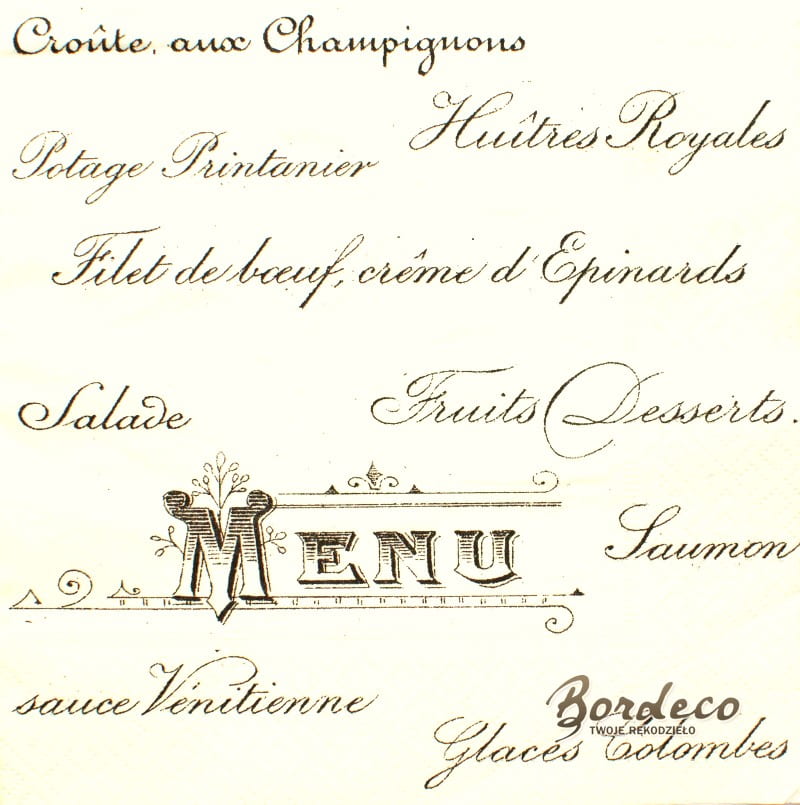 Croûte, aux Champignons
Huîtres Royales
Potage Printanier
Filet de bœuf, crême d'Epinards
Salade
Fruits Desserts.
MENU
Saumon
sauce Vénitienne
Bordeco
TWOJE RĘKODZIEŁO
Glacés Colombes